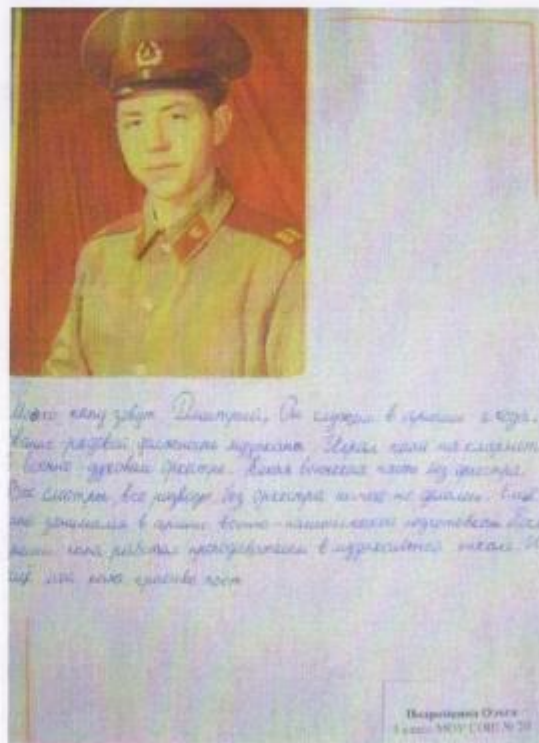 Моего папу зовут Дмитрий, Он служил в армии 2 года.
рядовой должность музыканта. Играл папа на кларнете
военно-духовом оркестре. Какая воинская часть без оркестра.
Все смотры, все разводы без оркестра ничего не делали. Ещё
занимался в армии военно-политической подготовкой.
папа работал преподавателем в музыкальной школе. И
ещё мой папа красиво поёт
Ольга
МОУ СОШ № 20